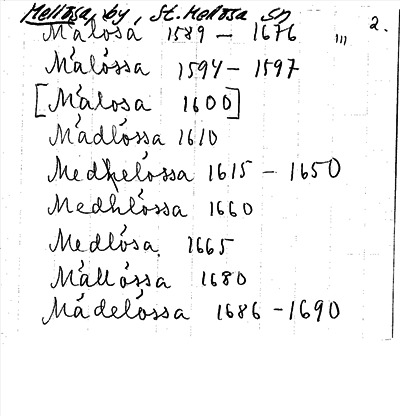 Mellösa, by, St. Mellösa sn
2.
Målösa 1589 – 1676
Målössa 1594 – 1597
[Målosa 1600]
Mådlössa 1610
Medhelössa 1615 – 1650
Medhlössa 1660
Medlösa 1665
Mållössa 1680
Mådelössa 1686 – 1690